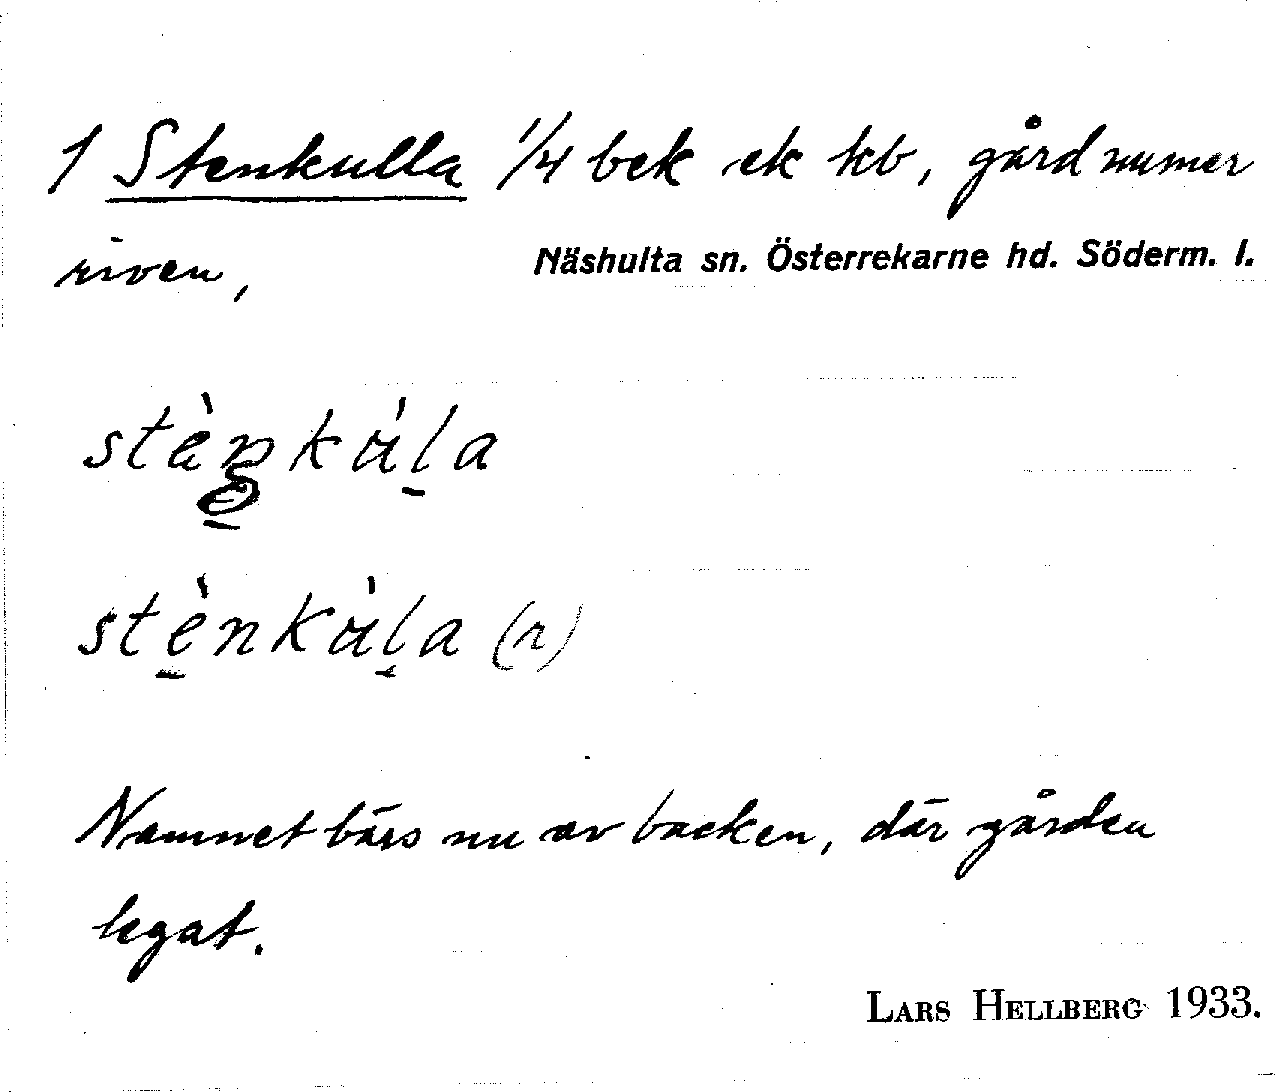 1 Stenkulla 1/4 bek ek kb, gård numer
riven,
Näshulta sn. Österrekarne hd. Söderm. l.
stènkùla
stènkùla (a)
Namnet bärs nu av backen, där gården
legat.
LARS HELLBERG 1933.